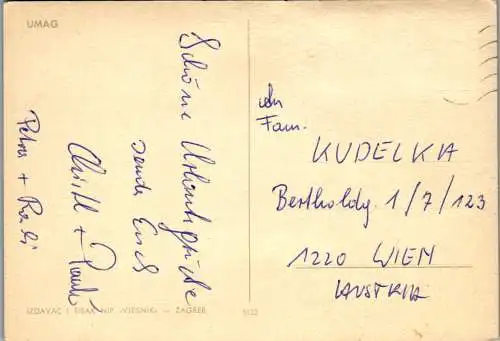 UMAG
Schöne Urlaubsgrüße
sendet Euch
Christl +
Petra + Rudi
An
Fam.
KUDELKA
Bertholdg. 1/7/123
1220 WIEN
AUSTRIA
IZDAVAČ I TISAK NIP »VJESNIK« — ZAGREB
5132